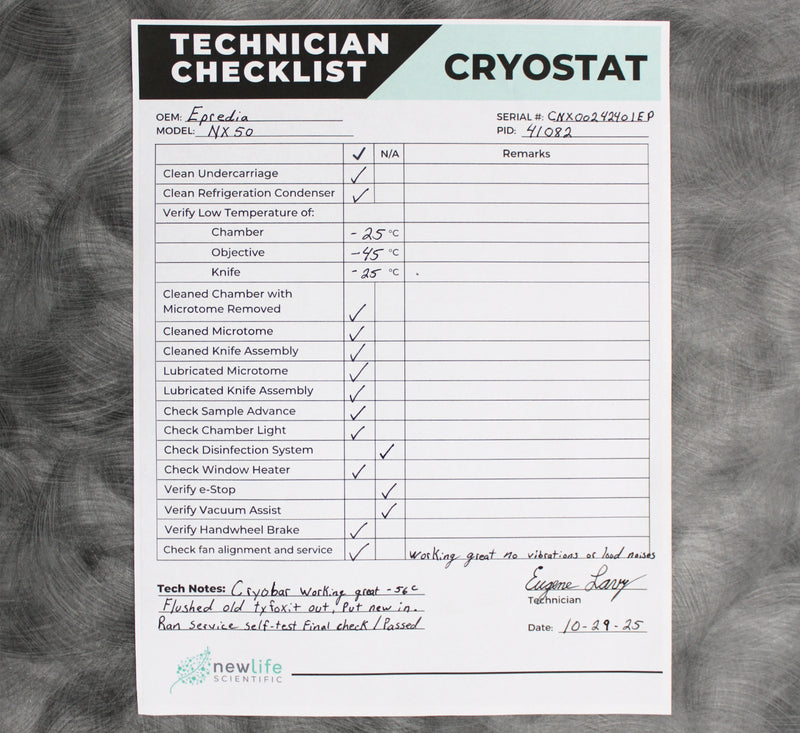 TECHNICIAN CHECKLIST
CRYOSTAT
OEM: Epredia
MODEL: NX50
SERIAL #: CNX00242401EP
PID: 41082
✓ N/A Remarks
Clean Undercarriage ✓
Clean Refrigeration Condenser ✓
Verify Low Temperature of:
Chamber -25 °C
Objective -45 °C
Knife -25 °C
Cleaned Chamber with
Microtome Removed ✓
Cleaned Microtome ✓
Cleaned Knife Assembly ✓
Lubricated Microtome ✓
Lubricated Knife Assembly ✓
Check Sample Advance ✓
Check Chamber Light ✓
Check Disinfection System ✓
Check Window Heater ✓
Verify e-Stop ✓
Verify Vacuum Assist ✓
Verify Handwheel Brake ✓
Check fan alignment and service ✓ Working great no vibrations or loud noises
Tech Notes: Cryobar working great -56c
Flushed old tyfoxit out, Put new in.
Ran service self-test Final check / Passed
Eugene Lavy
Technician
Date: 10-29-25
newlife
SCIENTIFIC